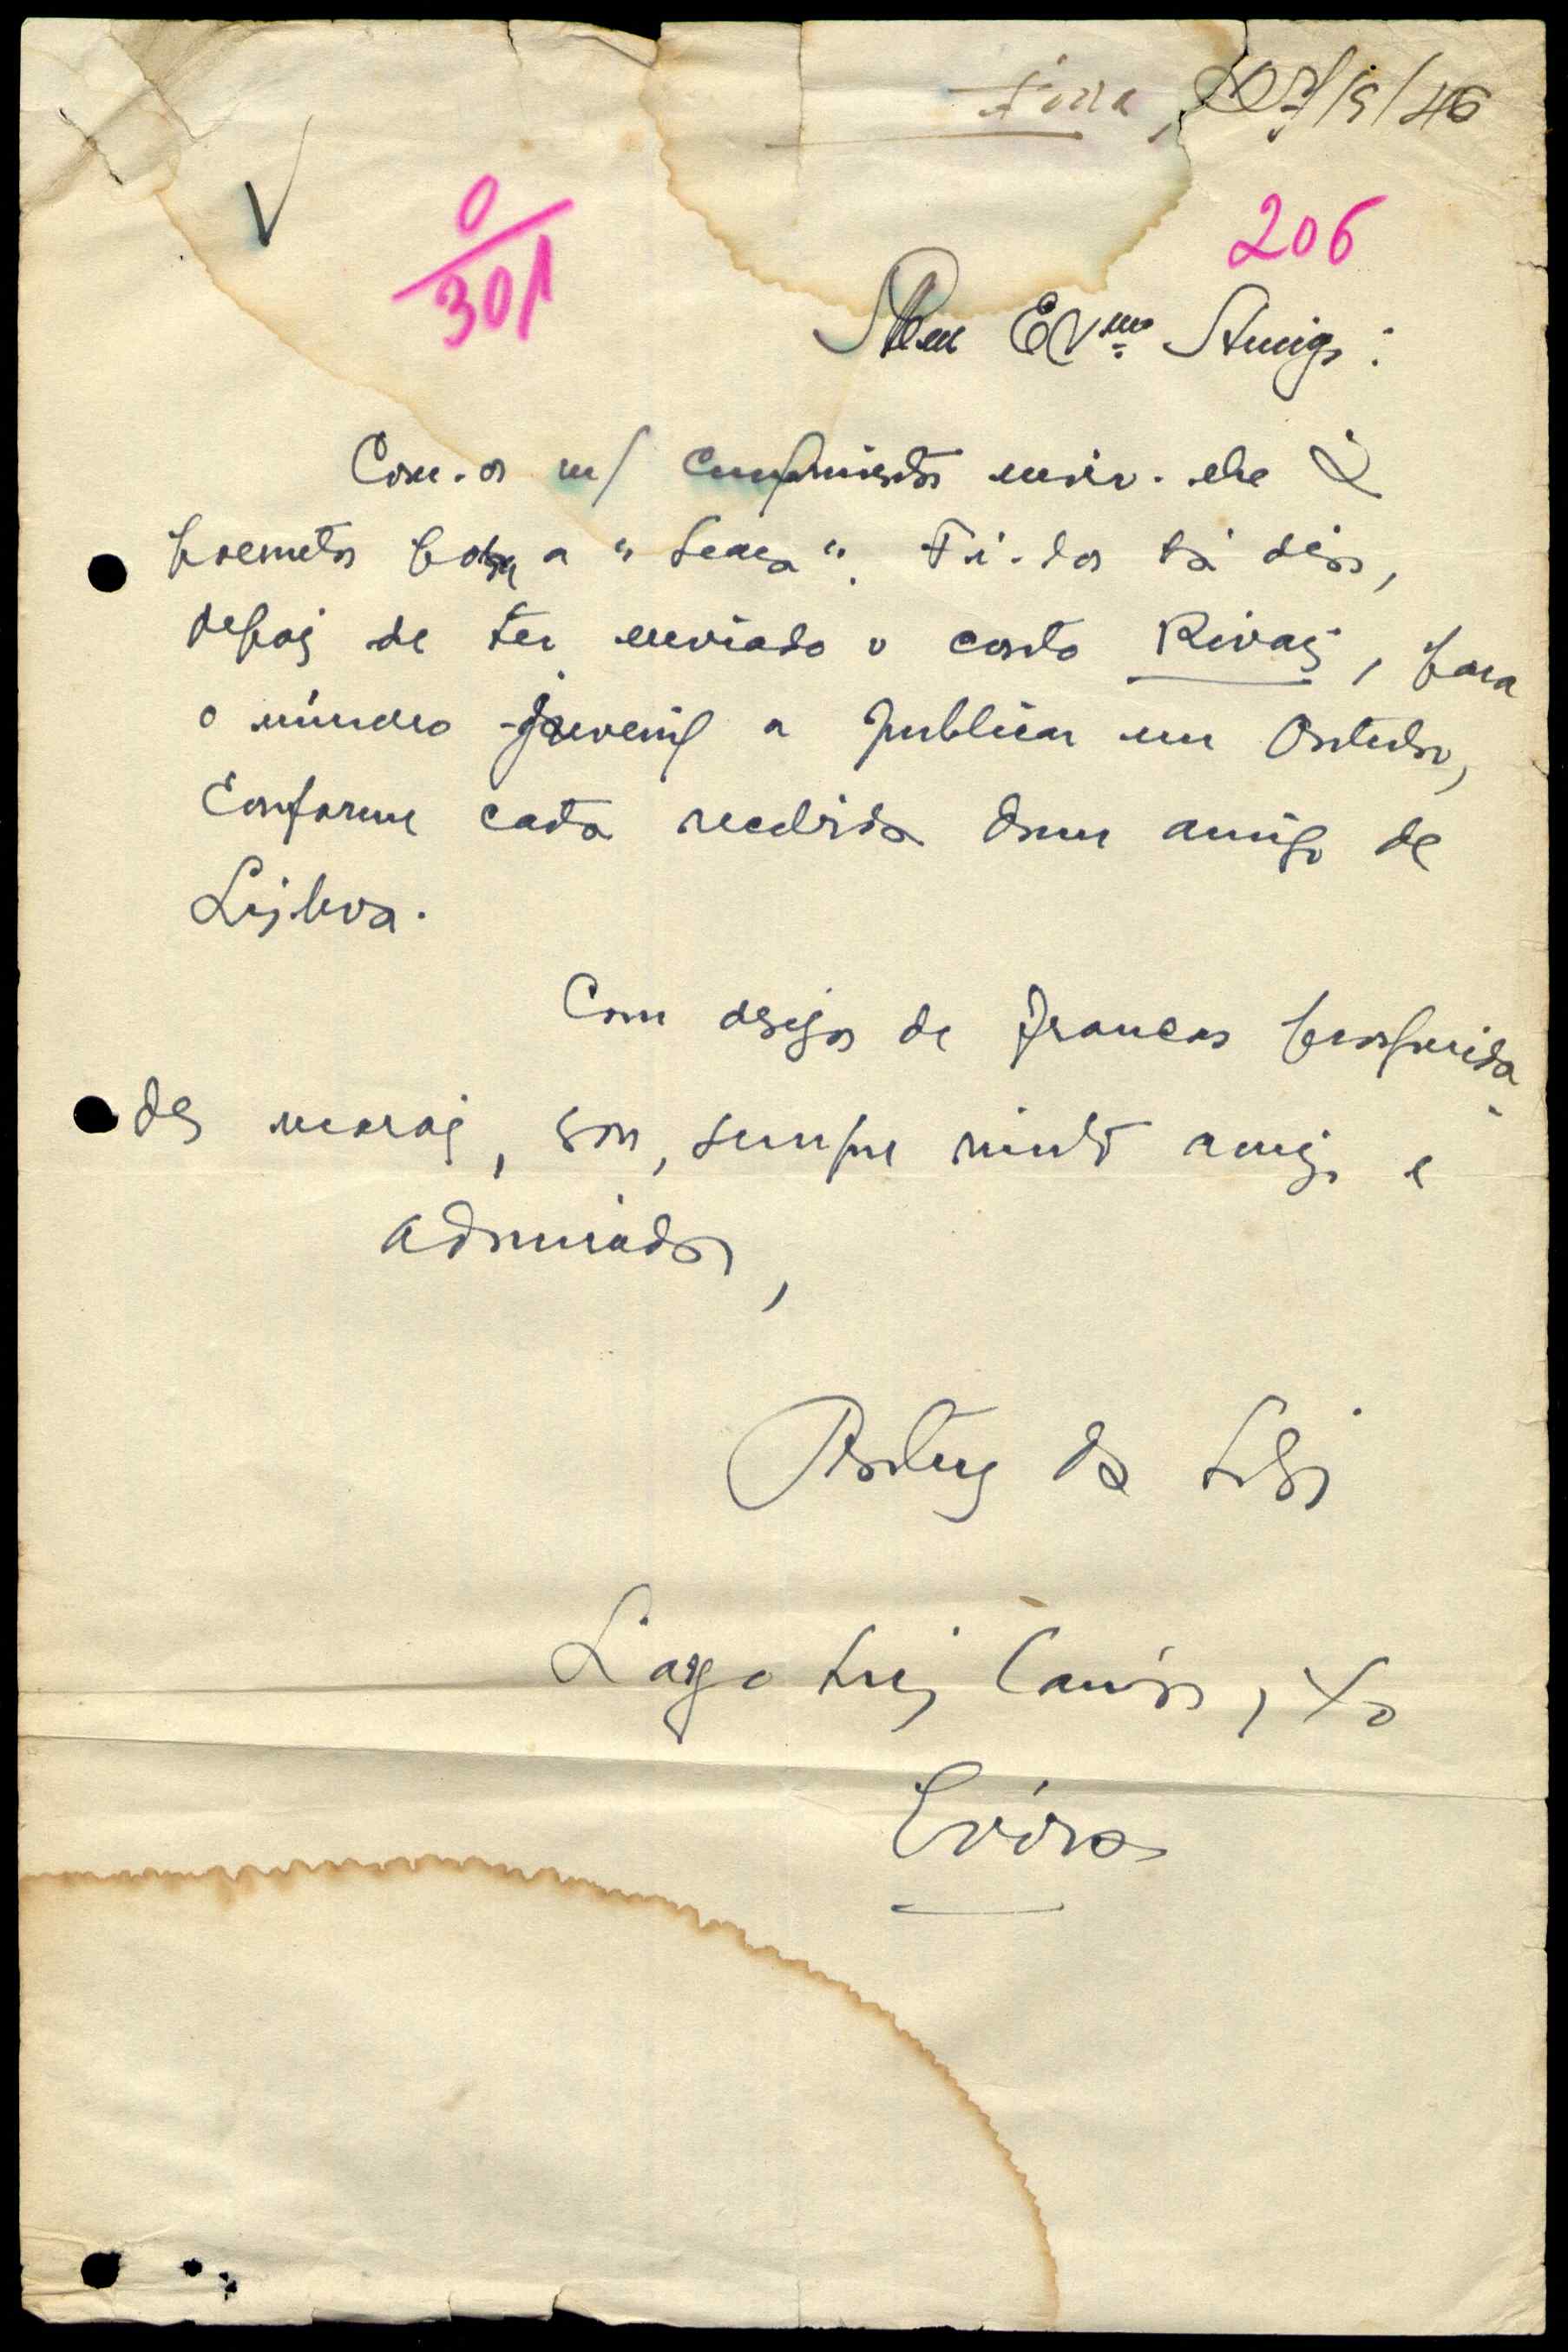 Évora, 27/9/46
V
0/301
206
Meu Exmo Amigo:
Com os m/ cumprimentos envio-lhe 2
poemetos para a "Seara". Fi-los há dias,
depois de ter enviado o conto Rivais, para
o número juvenil a publicar em Outubro,
conforme carta recebida dum amigo de
Lisboa.
Com desejos de francas prosperida-
des morais, sou, sempre muito amigo e
admirador,
Antunes da Silva
Largo Luís Camões, 40
Évora